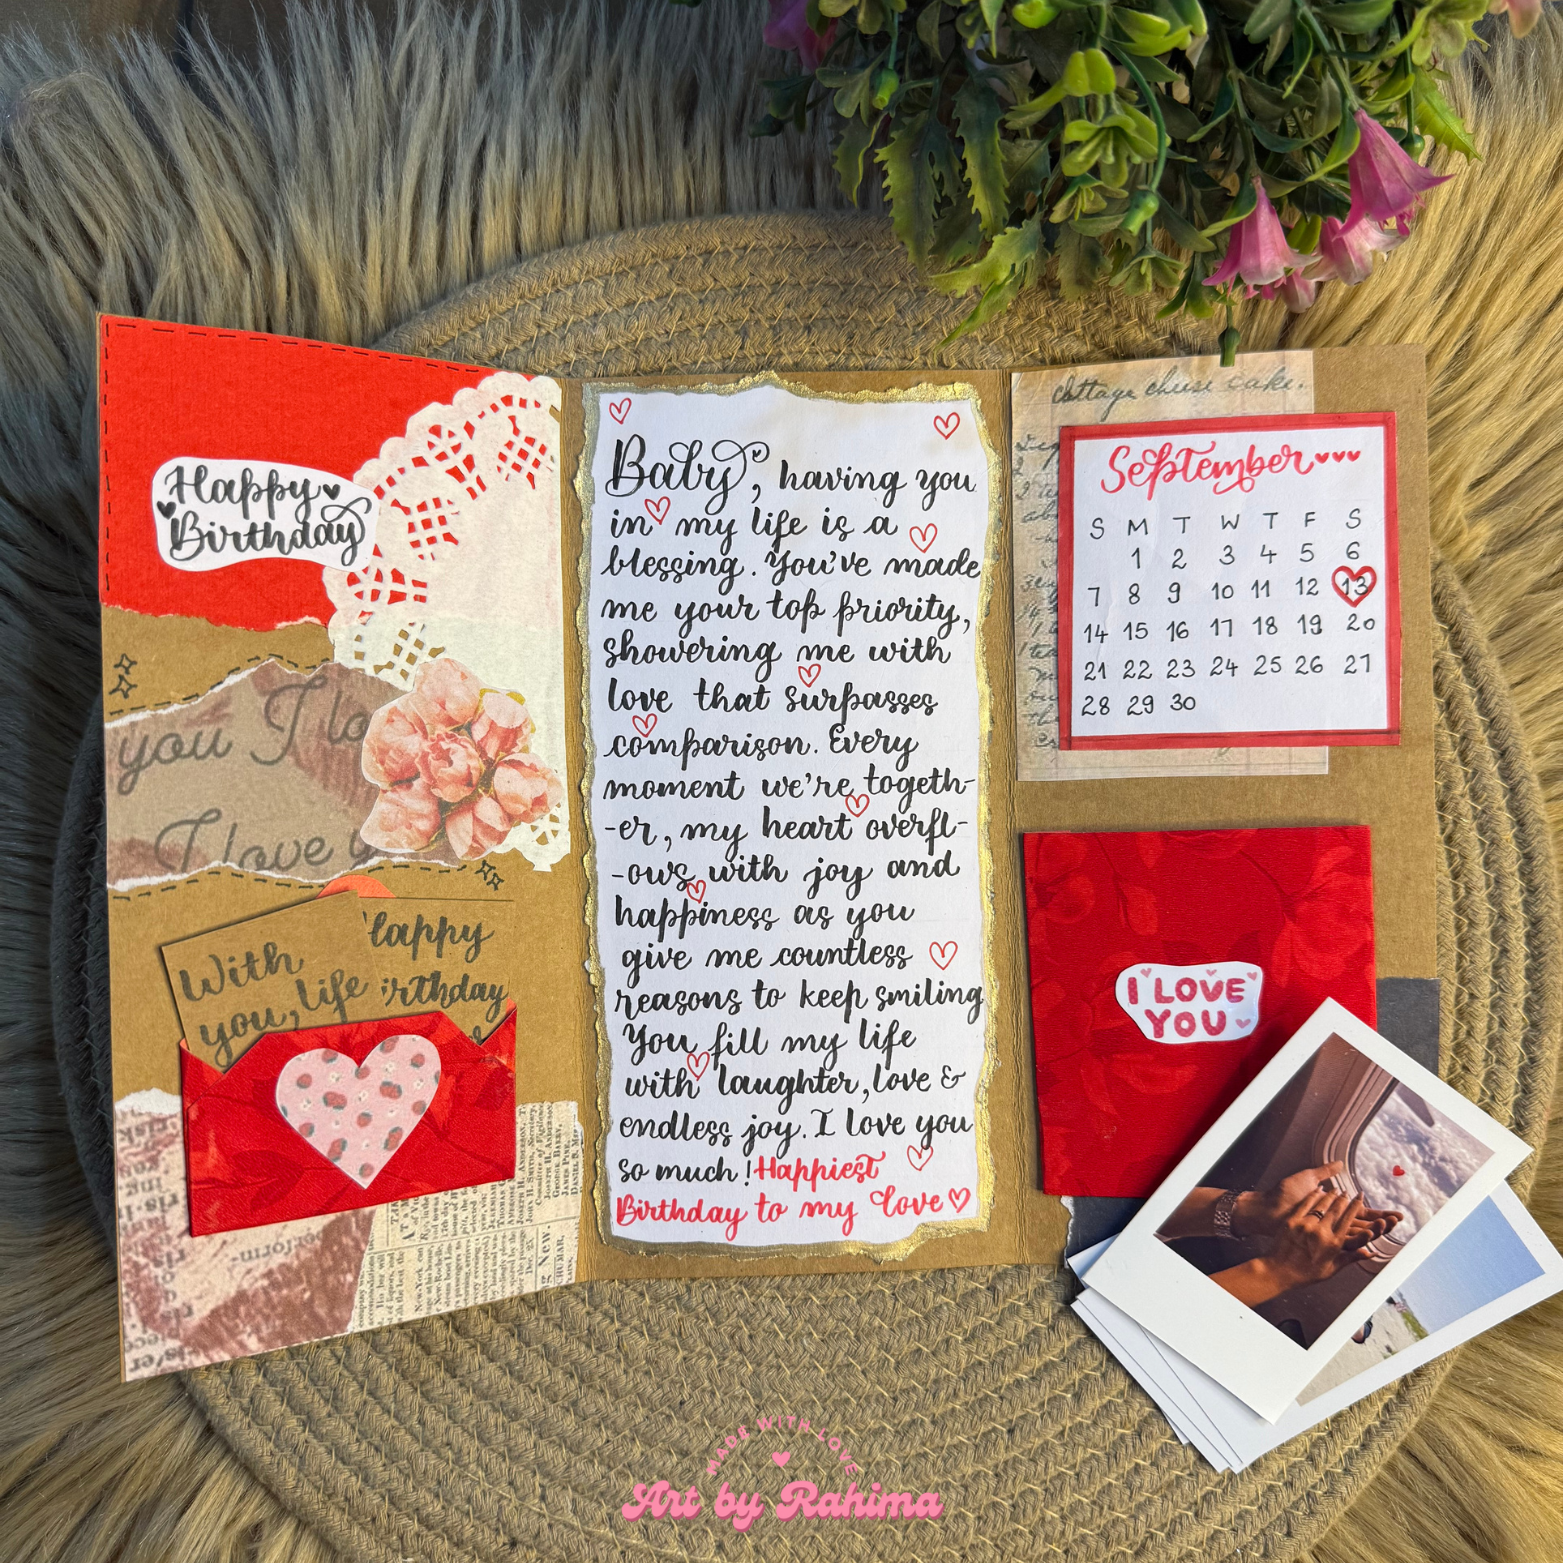 Happy
Birthday
you I lo
I love y
With
you, life
Happy
irthday
Baby, having you
in my life is a
blessing. You've made
me your top priority,
showering me with
love that surpasses
comparison. Every
moment we're togeth-
-er, my heart overfl-
-ows with joy and
happiness as you
give me countless
reasons to keep smiling
You fill my life
with laughter, love &
endless joy. I love you
so much! Happiest
Birthday to my love
cottage cheese cake.
September
S M T W T F S
1 2 3 4 5 6
7 8 9 10 11 12 13
14 15 16 17 18 19 20
21 22 23 24 25 26 27
28 29 30
I LOVE
YOU
perform-
MADE WITH LOVE
Art by Rahima